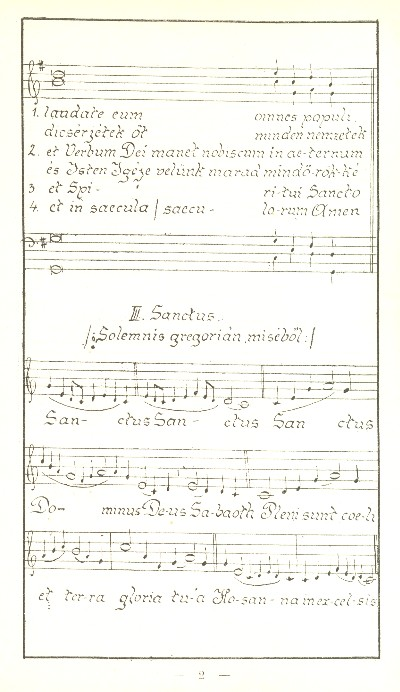 1. laudate eum omnes populi.
dicsérjétek őt minden nemzetek
2. et Verbum Dei manet nobiscum in ae-ternum
és Isten Igéje velünk marad mindö-rök-ké
3 et Spi- ri-tui Sancto
4. et in saecula / saecu- lo-rum Amen
III. Sanctus.
/:Solemnis gregorián miséből:/
San- ctus San- ctus San ctus
Do- minus De-us Sa-baoth Pleni sunt coe-li
et ter-ra gloria tu-a Ho-san-na in ex-cel-sis
— 2 —